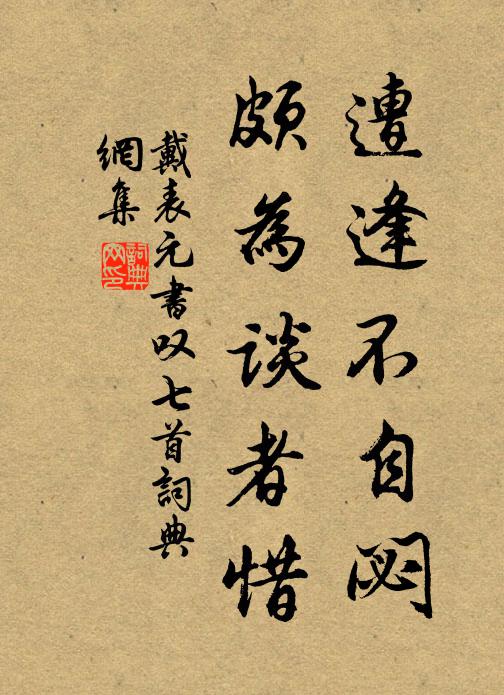 遭逢不自閟
頗為談者惜
戴表元書叹七首詞典
網集
詞典
网印